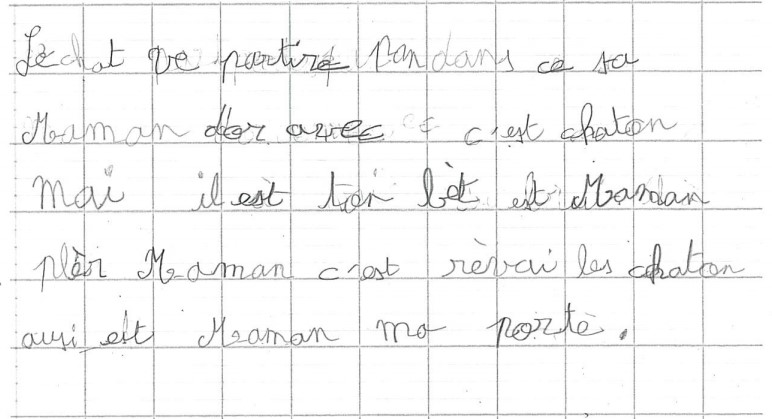 Le chat ve partire Pandans ce sa
Maman dor avec c'est chaton
Mai il est toi bèt est Maman
plèr Maman c'est rèvai les chaton
ausi est Maman ma porte.